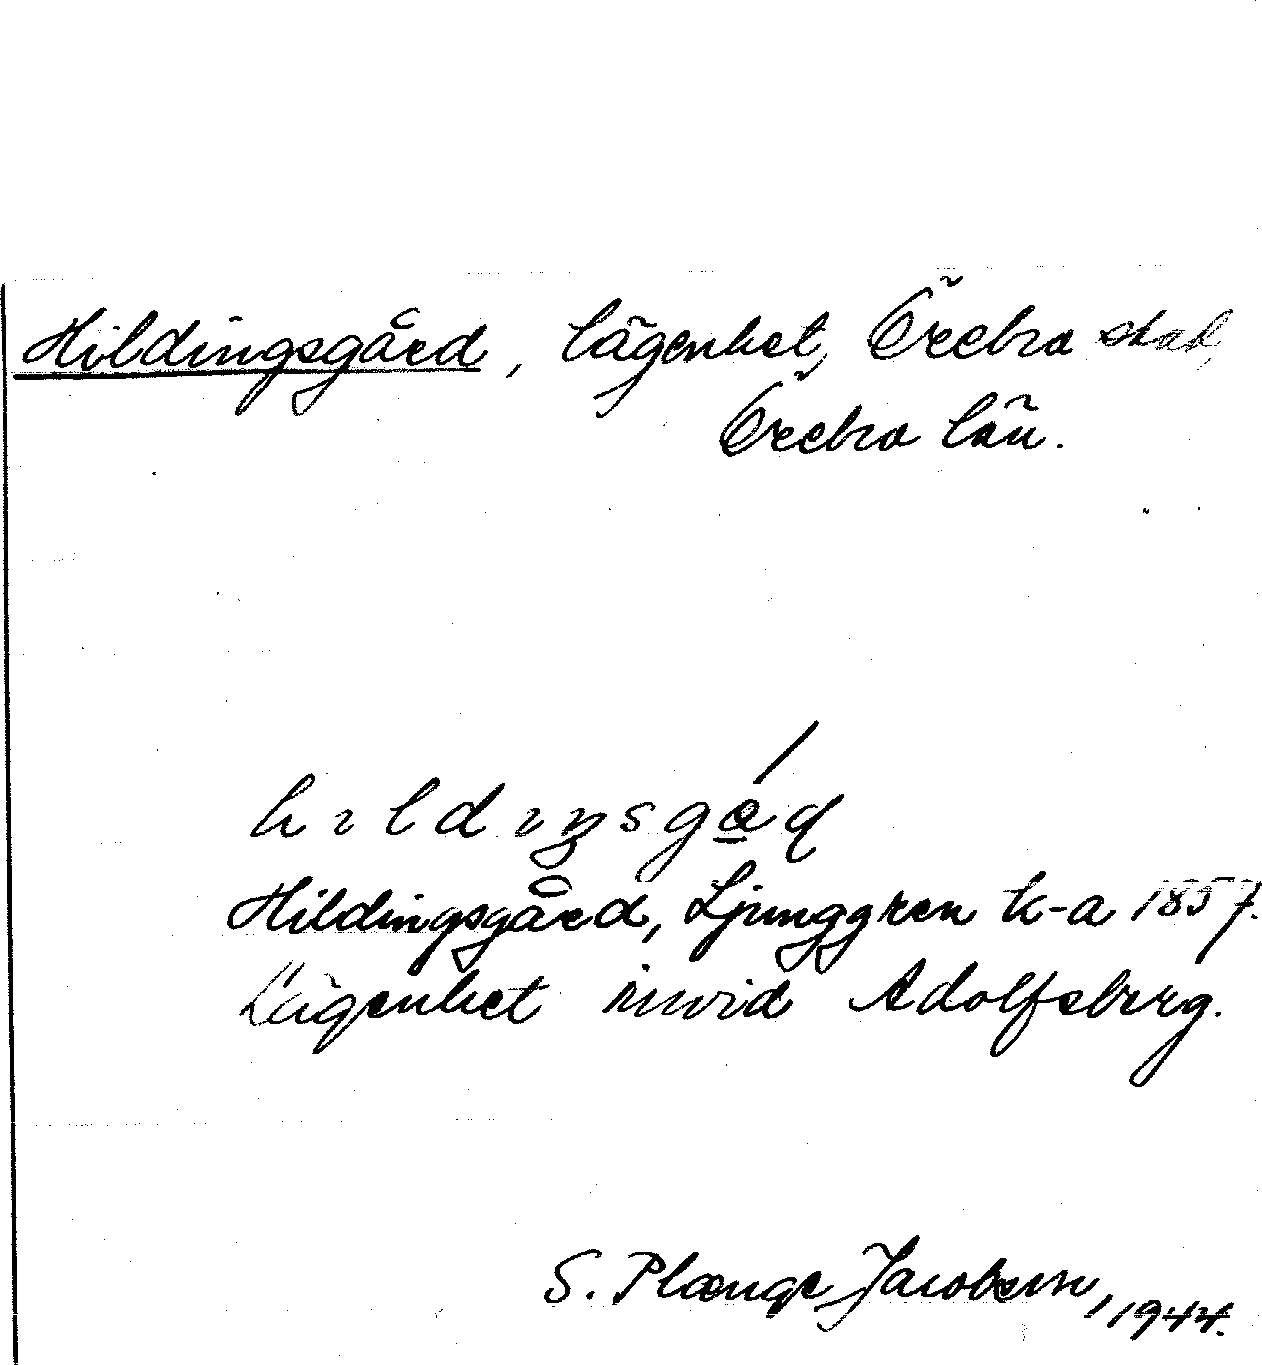 Hildingsgård, lägenhet, Örebro stad,
Örebro län.
Hildingsgård, Ljunggren k-a 1857.
Lägenhet invid Adolfsberg.
S. Plænge Jacobsen, 1944.